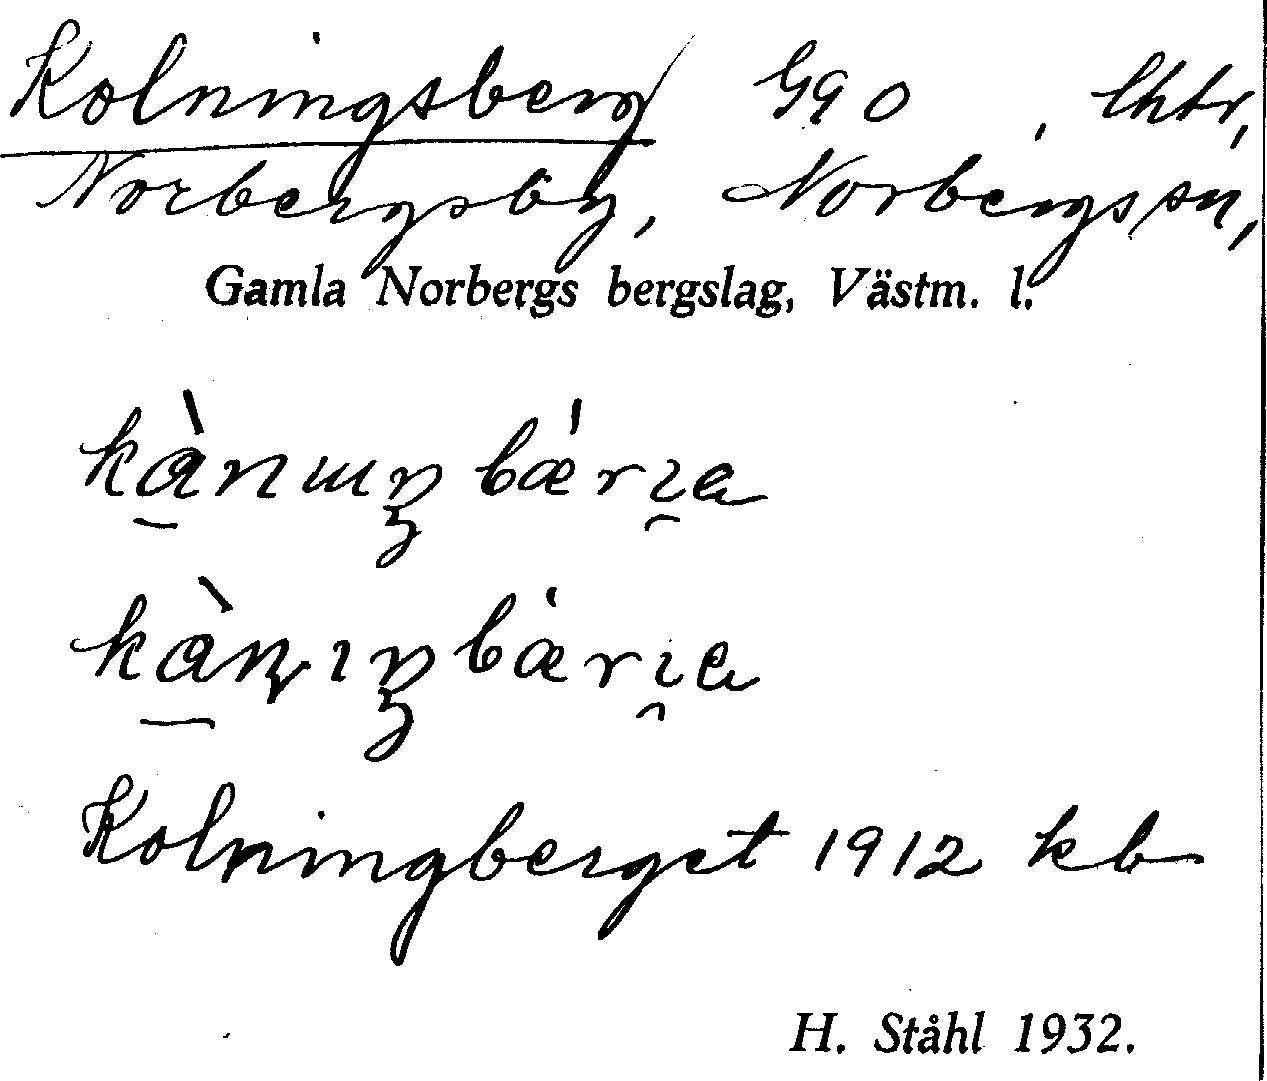 Kolningsberg G90, lhtr,
Norbergsby, Norbergs sn,
Gamla Norbergs bergslag, Västm. l.
Kolningberget 1912 kb
H. Ståhl 1932.